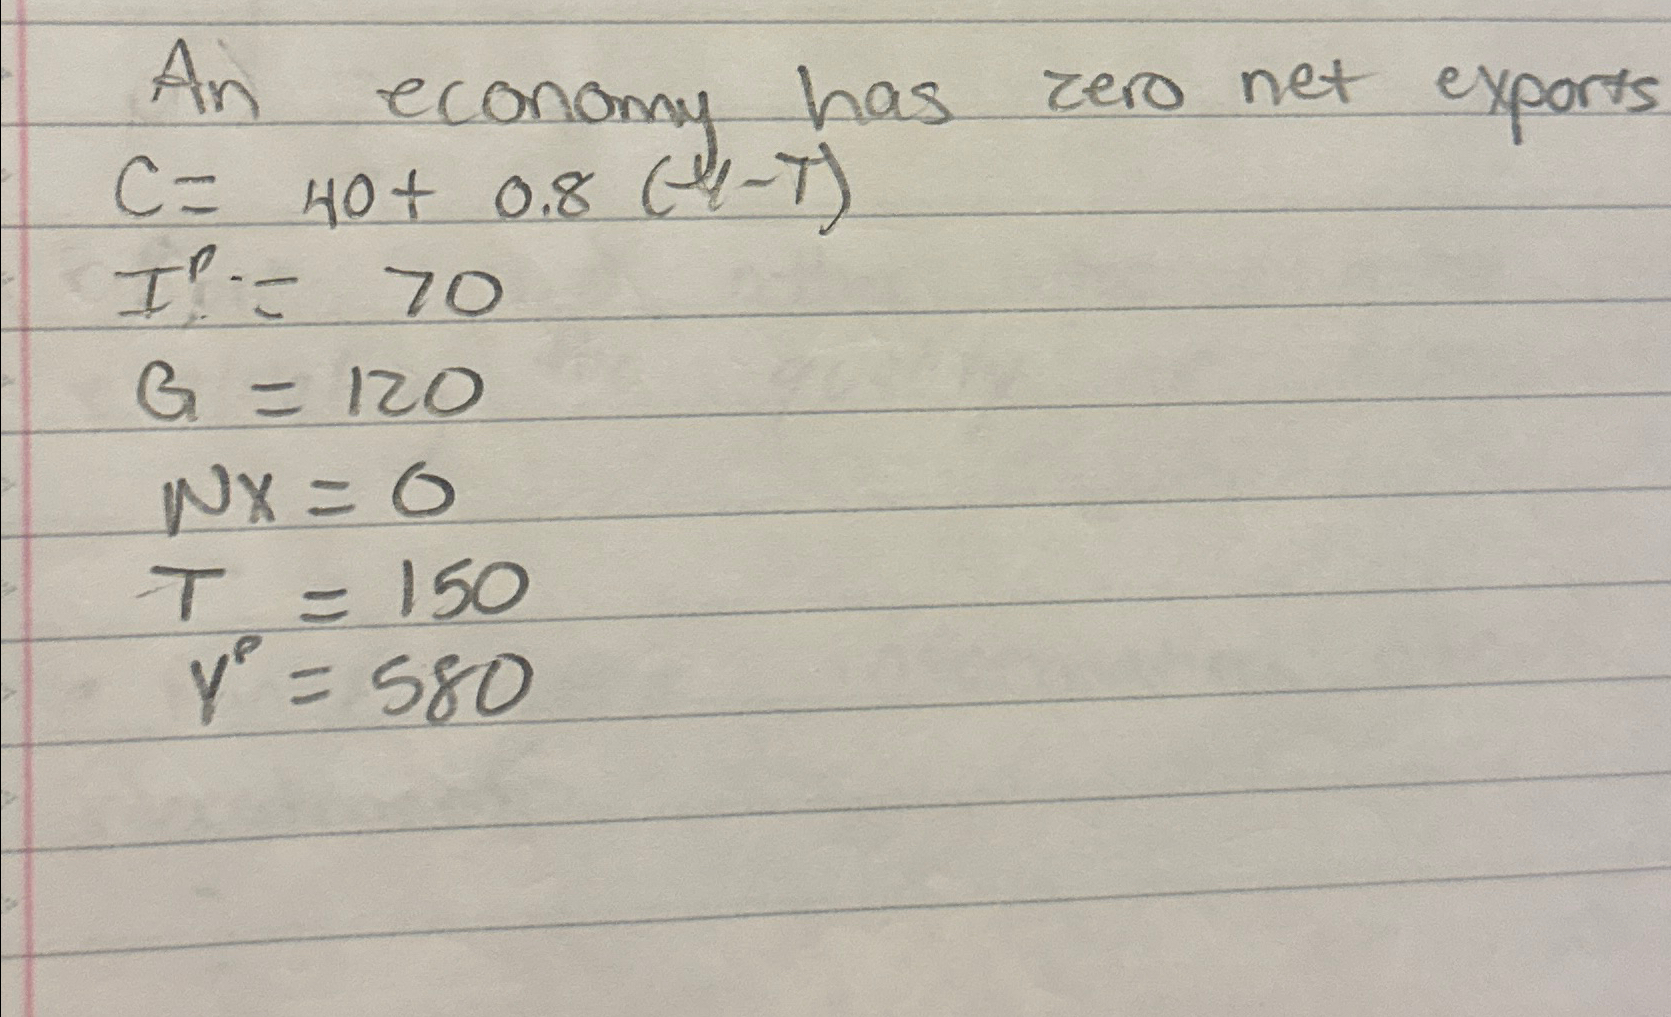 An economy has zero net exports
C = 40 + 0.8 (Y-T)
I^P = 70
G = 120
NX = 0
T = 150
Y^P = 580